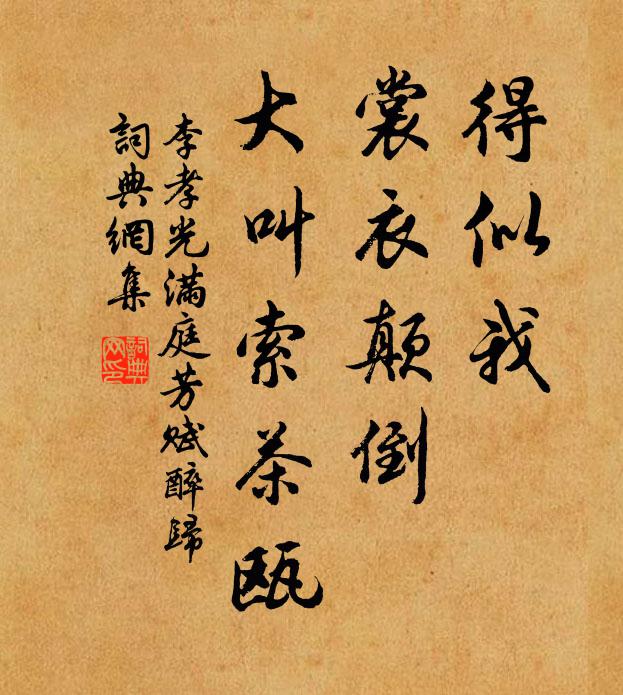 得似我
裳衣颠倒
大叫索茶瓯
李孝光满庭芳赋醉歸
詞典網集
詞典网印